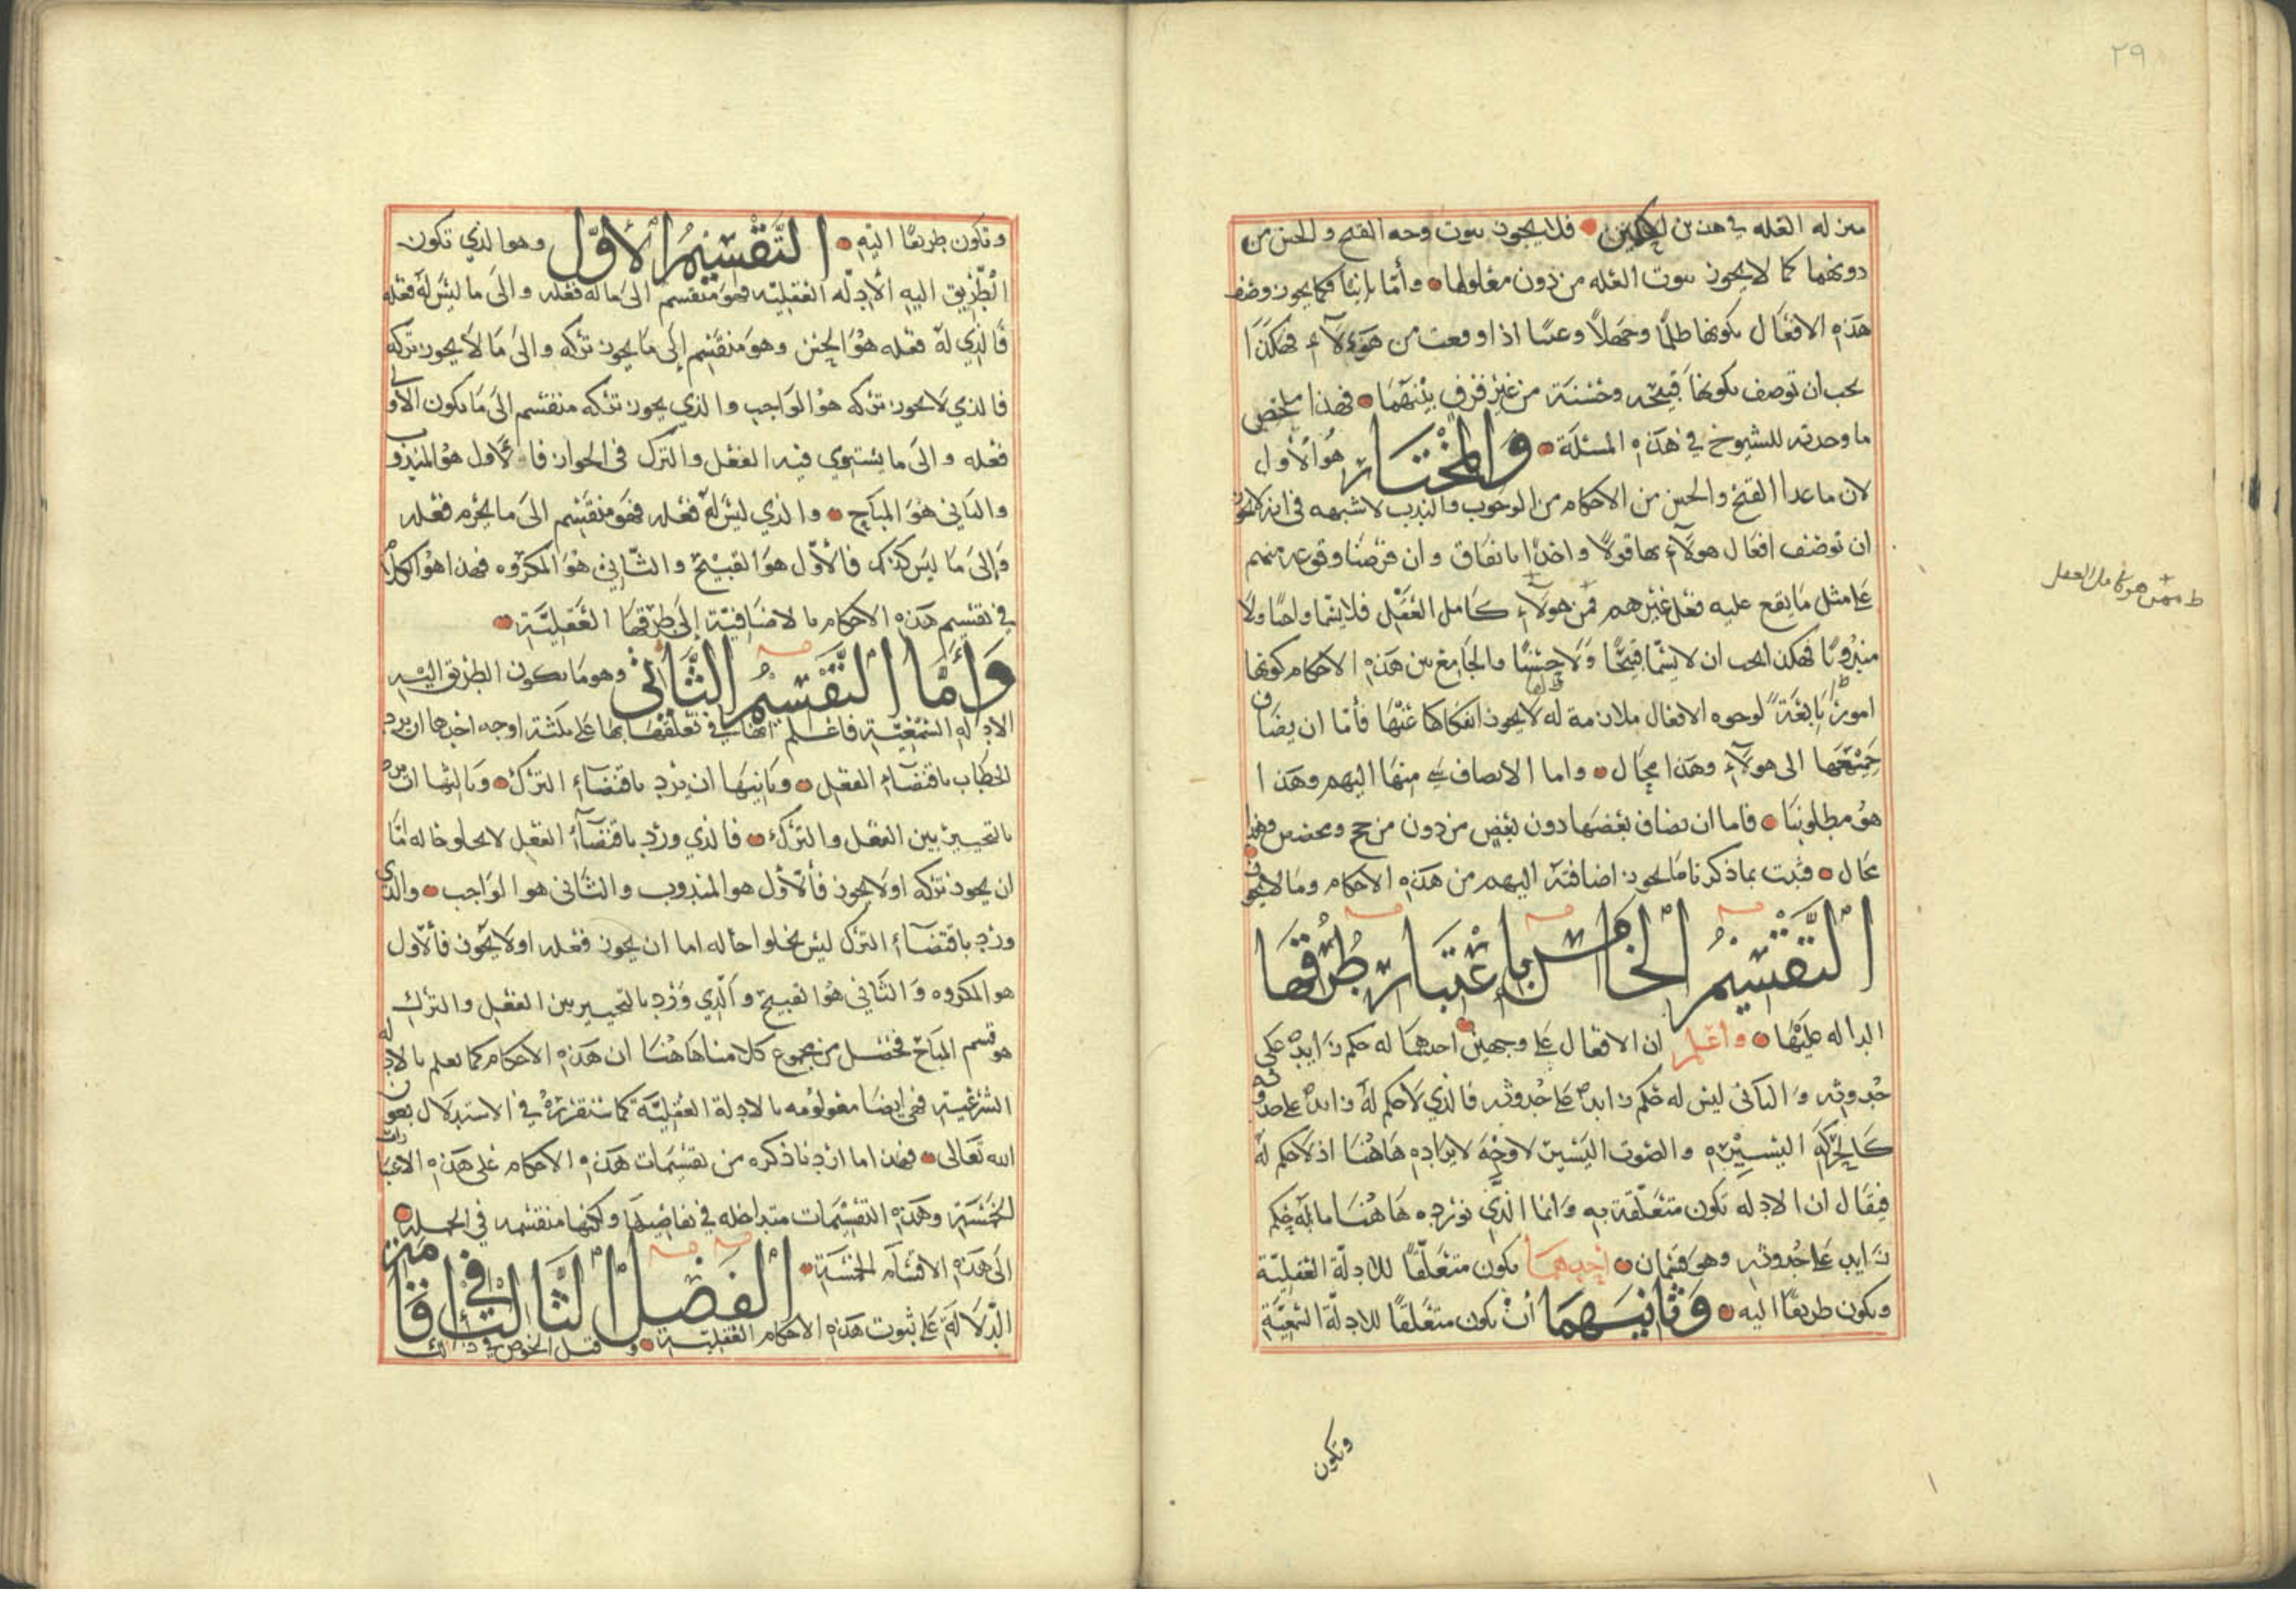 ٢٩
منزلة العله في هذين الحكمين فلا يجوز ثبوت وجه القبح والحسن من
دونهما كما لا يجوز ثبوت العله من دون معلولها وأما ثانيا فكما يجوز وصف
هذه الافعال بكونها ظلما وجهلا وعبثا اذا وقعت من هؤلاء فهكذا
يجب ان توصف بكونها قبيحه وحسنة من غير فرق بينهما فهذا ملخص
ما وجدته للشيوخ في هذه المسئلة والمختار هو الأول
لان ما عدا القبح والحسن من الاحكام من الوجوب والندب لا شبهه في انه لا يجوز
ان توصف افعال هولاء بها قولا واحدا باتفاق وان فرضنا وقوعه منهم
على مثل ما يقع عليه فعل غيرهم فمن هولاء كامل العقل فلا يسما واجبا ولا
مندوبا فهكذا يجب ان لا يسما قبيحا ولا حسنا والجامع بين هذه الاحكام كونها
امورا تابعة لوجوه الافعال ملازمة له لا يجوز انفكاكها عنها فأما ان يضاف
جميعها الى هولاء وهذا محال واما الا يضاف شي منها اليهم وهذا
هو مطلوبنا فاما ان يضاف بعضها دون بعض من دون مرجح ومخصص وهذا
محال فثبت بما ذكرنا ما يجوز اضافته اليهم من هذه الاحكام وما لا يجوز
التقسيم الخامس باعتبار طرقها
الداله عليها واعلم ان الافعال على وجهين احدهما له حكم زايد على
حدوثه والثاني ليس له حكم زايد على حدوثه فالذي لا حكم له زايد على حدوثه
كالحركه اليسيره والصوت اليسير لا وجه لايراده هاهنا اذ لا حكم له
فيقال ان الادله تكون متعلقة به وانما الذي نورده هاهنا ما له حكم
زايد على حدوثه وهو قسمان احدهما يكون متعلقا للادلة العقلية
ويكون طريقا اليه وثانيهما أن يكون متعلقا للادلة السمعية
وتكون
وتكون طريقا اليه التقسيم الأول وهو الذي تكون
الطريق اليه الأدله العقليه فهو منقسم الى ما له فعله والى ما ليس له فعله
فالذي له فعله هو الحسن وهو منقسم إلى ما يجوز تركه والى ما لا يجوز تركه
فالذي لا يجوز تركه هو الواجب والذي يجوز تركه منقسم الى ما يكون الأولى
فعله والى ما يستوي فيه الفعل والترك في الجواز فالأول هو المندوب
والثاني هو المباح والذي ليس له فعله فهو منقسم الى ما يحرم فعله
وإلى ما ليس كذلك فالأول هو القبيح والثاني هو المكروه فهذا هو الكلام
في تقسيم هذه الاحكام بالاضافية إلى طرقها العقلية
وأما التقسيم الثاني وهو ما يكون الطريق اليه
الادله السمعية فاعلم انها في تعلقها بها على ثلثة اوجه احدها ان يرد
الخطاب باقتضاء الفعل وثانيها ان يرد باقتضاء الترك وثالثها ان يرد
بالتخيير بين الفعل والترك فالذي ورد باقتضاء الفعل لا يخلو حاله اما
ان يجوز تركه او لا يجوز فالأول هو المندوب والثاني هو الواجب والذي
ورد باقتضاء الترك ليس يخلوا حاله اما ان يجوز فعله او لا يجوز فالأول
هو المكروه والثاني هو القبيح والذي ورد بالتخيير بين الفعل والترك
هو قسم المباح فحصل من مجموع كلامنا هاهنا ان هذه الاحكام كما تعلم بالادله
الشرعية فهي ايضا معلومه بالادلة العقلية كما سنقرره في الاستدلال بعون
الله تعالى فهذا ما اردنا ذكره من تقسيمات هذه الاحكام على هذه الاعتبارات
الخمسة وهذه التقسيمات متداخله في تفاصيلها ولكنها منقسمه في الجمله
الى هذه الاقسام الخمسة الفصل الثالث في اقامة
الدلالة على ثبوت هذه الاحكام العقلية وقبل الخوض في ذلك